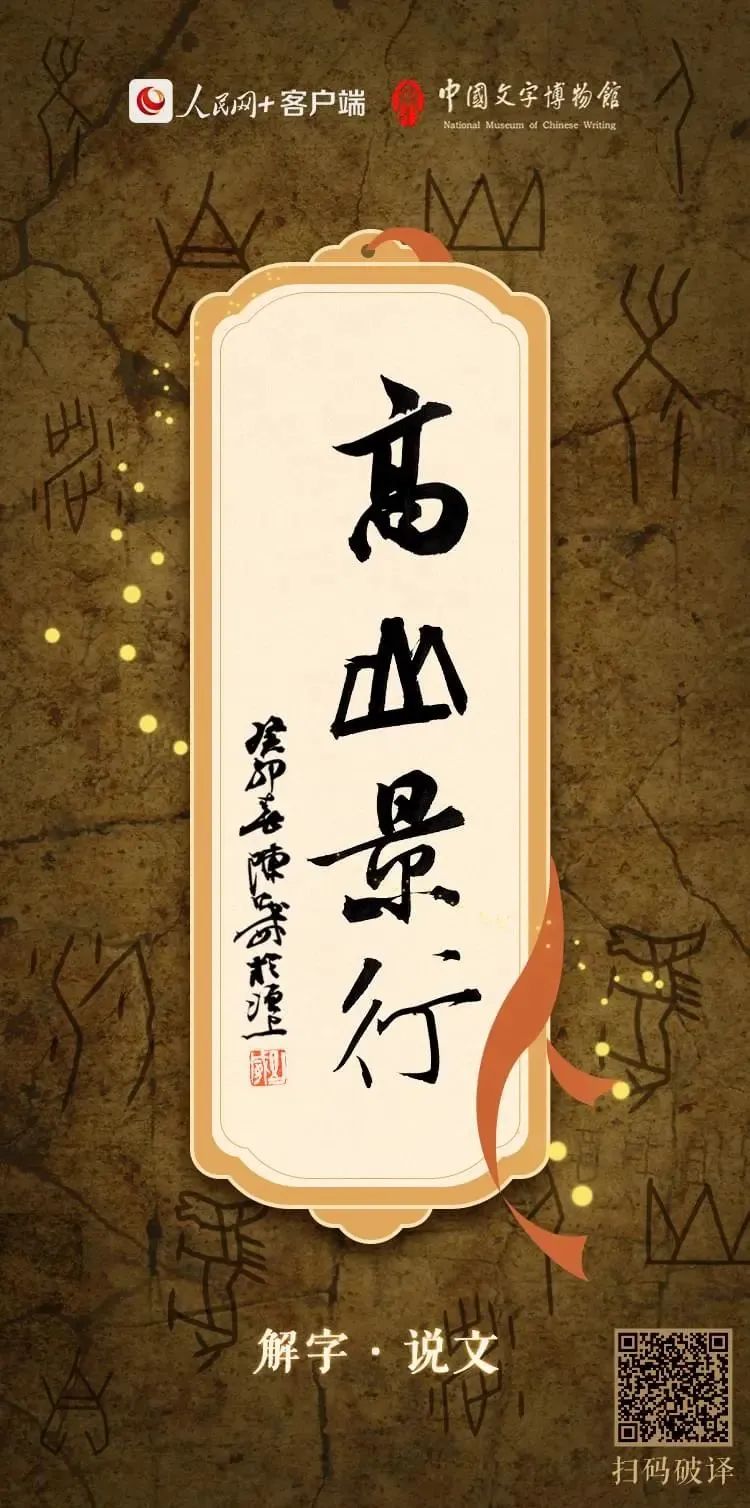 人民网+客户端
中國文字博物館
National Museum of Chinese Writing
高山景行
癸卯春陳
解字·说文
扫码破译